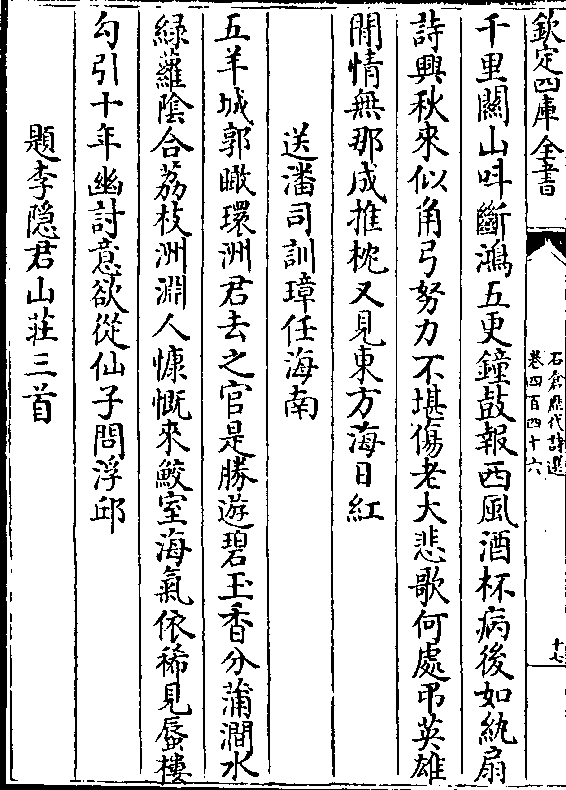 欽定四庫全書
石倉歷代詩選
卷四百四十六
十七
千里關山呌斷鴻五更鐘鼓報西風酒杯病後如紈扇
詩興秋來似角弓努力不堪傷老大悲歌何處弔英雄
閒情無那成推枕又見東方海日紅
送潘司訓璋任海南
五羊城郭瞰環洲君去之官是勝遊碧玉香分蒲澗水
緑蘿陰合荔枝洲淵人慷慨來鮫室海氣依稀見蜃樓
勾引十年幽討意欲從仙子問浮邱
題李隠君山莊三首